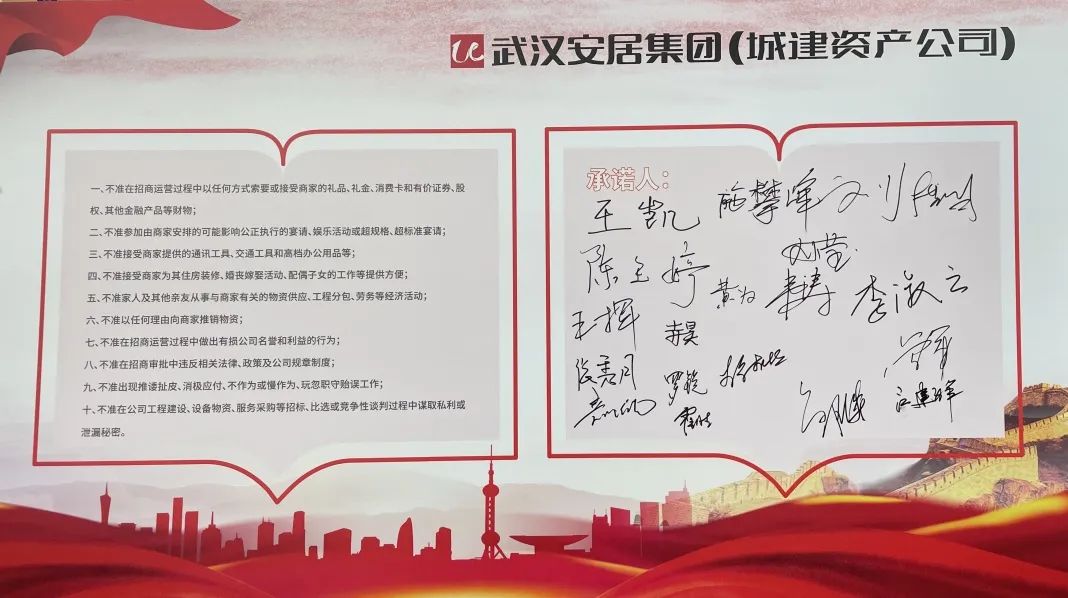 武汉安居集团(城建资产公司)
一、不准在招商运营过程中以任何方式索要或接受商家的礼品、礼金、消费卡和有价证券、股
权、其他金融产品等财物;
二、不准参加由商家安排的可能影响公正执行的宴请、娱乐活动或超规格、超标准宴请;
三、不准接受商家提供的通讯工具、交通工具和高档办公用品等;
四、不准接受商家为其住房装修、婚丧嫁娶活动、配偶子女的工作等提供方便;
五、不准家人及其他亲友从事与商家有关的物资供应、工程分包、劳务等经济活动;
六、不准以任何理由向商家推销物资;
七、不准在招商运营过程中做出有损公司名誉和利益的行为;
八、不准在招商审批中违反相关法律、政策及公司规章制度;
九、不准出现推诿扯皮、消极应付、不作为或慢作为、玩忽职守贻误工作;
十、不准在公司工程建设、设备物资、服务采购等招标、比选或竞争性谈判过程中谋取私利或
泄漏秘密。
承诺人:
王凯
施攀
陈玉婷
黄为
李淑云
王挥